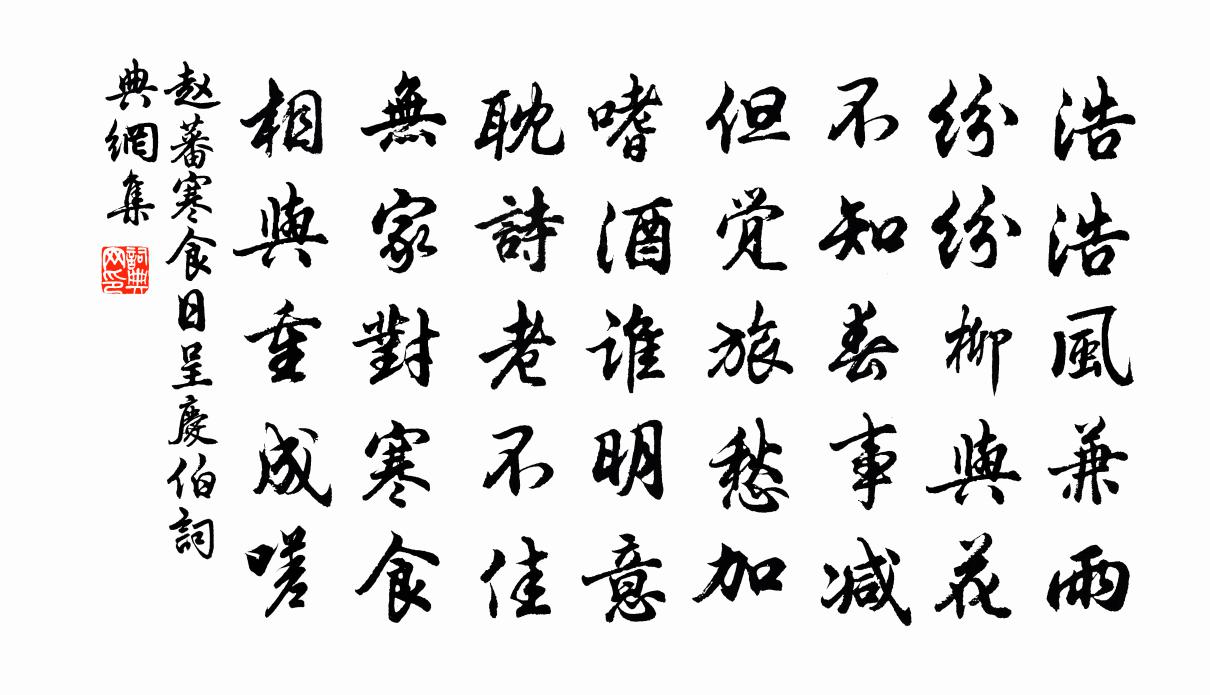 浩浩風兼雨
紛紛柳與花
不知春事减
但觉旅愁加
嗜酒谁明意
耽詩老不佳
無家對寒食
相與重成嗟
赵蕃寒食日呈慶伯詞
典網集
詞典
网印